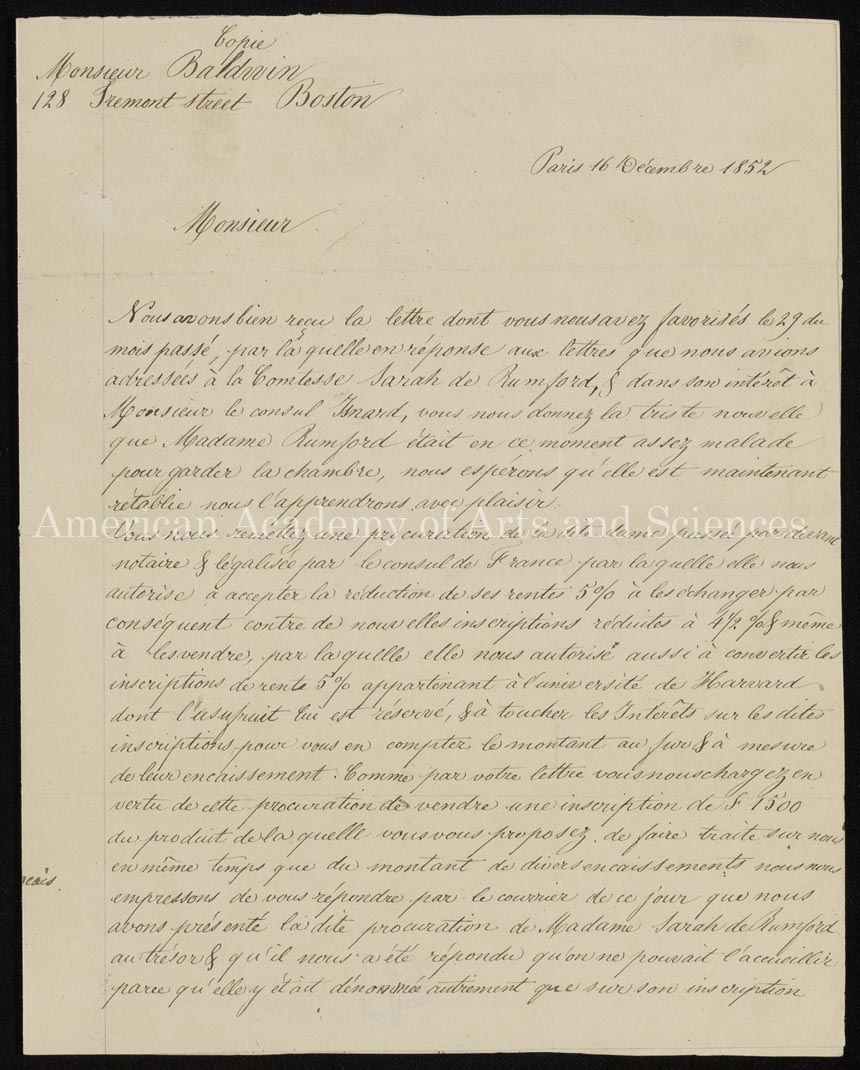 Copie
Monsieur Baldwin
128 Tremont street Boston
Paris 16 Décembre 1852
Monsieur
Nous avons bien reçu la lettre dont vous nous avez favorisés le 29 du
mois passé, par la quelle en réponse aux lettres que nous avions
adressées à la Comtesse Sarah de Rumford, & dans son intérêt à
Monsieur le consul Isnard, vous nous donnez la triste nouvelle
que Madame Rumford était en ce moment assez malade
pour garder la chambre, nous espérons qu'elle est maintenant
rétablie nous l'apprendrons avec plaisir.
American Academy of Arts and Sciences
Vous nous remettez une procuration de la dite dame passée par devant
notaire & légalisée par le consul de France par la quelle elle nous
autorise à accepter la réduction de ses rentes 5% à les échanger par
conséquent contre de nouvelles inscriptions réduites à 4 1/2 % & même
à les vendre, par la quelle elle nous autorise aussi à convertir les
inscriptions de rente 5% appartenant à l'université de Harvard
dont l'usufruit lui est réservé, & à toucher les Intérêts sur les dites
inscriptions pour vous en compter le montant au fur & à mesure
de leur encaissement. Comme par votre lettre vous nous chargez en
vertu de cette procuration de vendre une inscription de F 1500
du produit de la quelle vous vous proposez de faire traite sur nous
en même temps que du montant de divers encaissements nous nous
empressons de vous répondre par le courrier de ce jour que nous
avons présenté la dite procuration de Madame Sarah de Rumford
au trésor & qu'il nous a été répondu qu'on ne pouvait l'accueillir
parce qu'elle y était dénommée autrement que sur son inscription